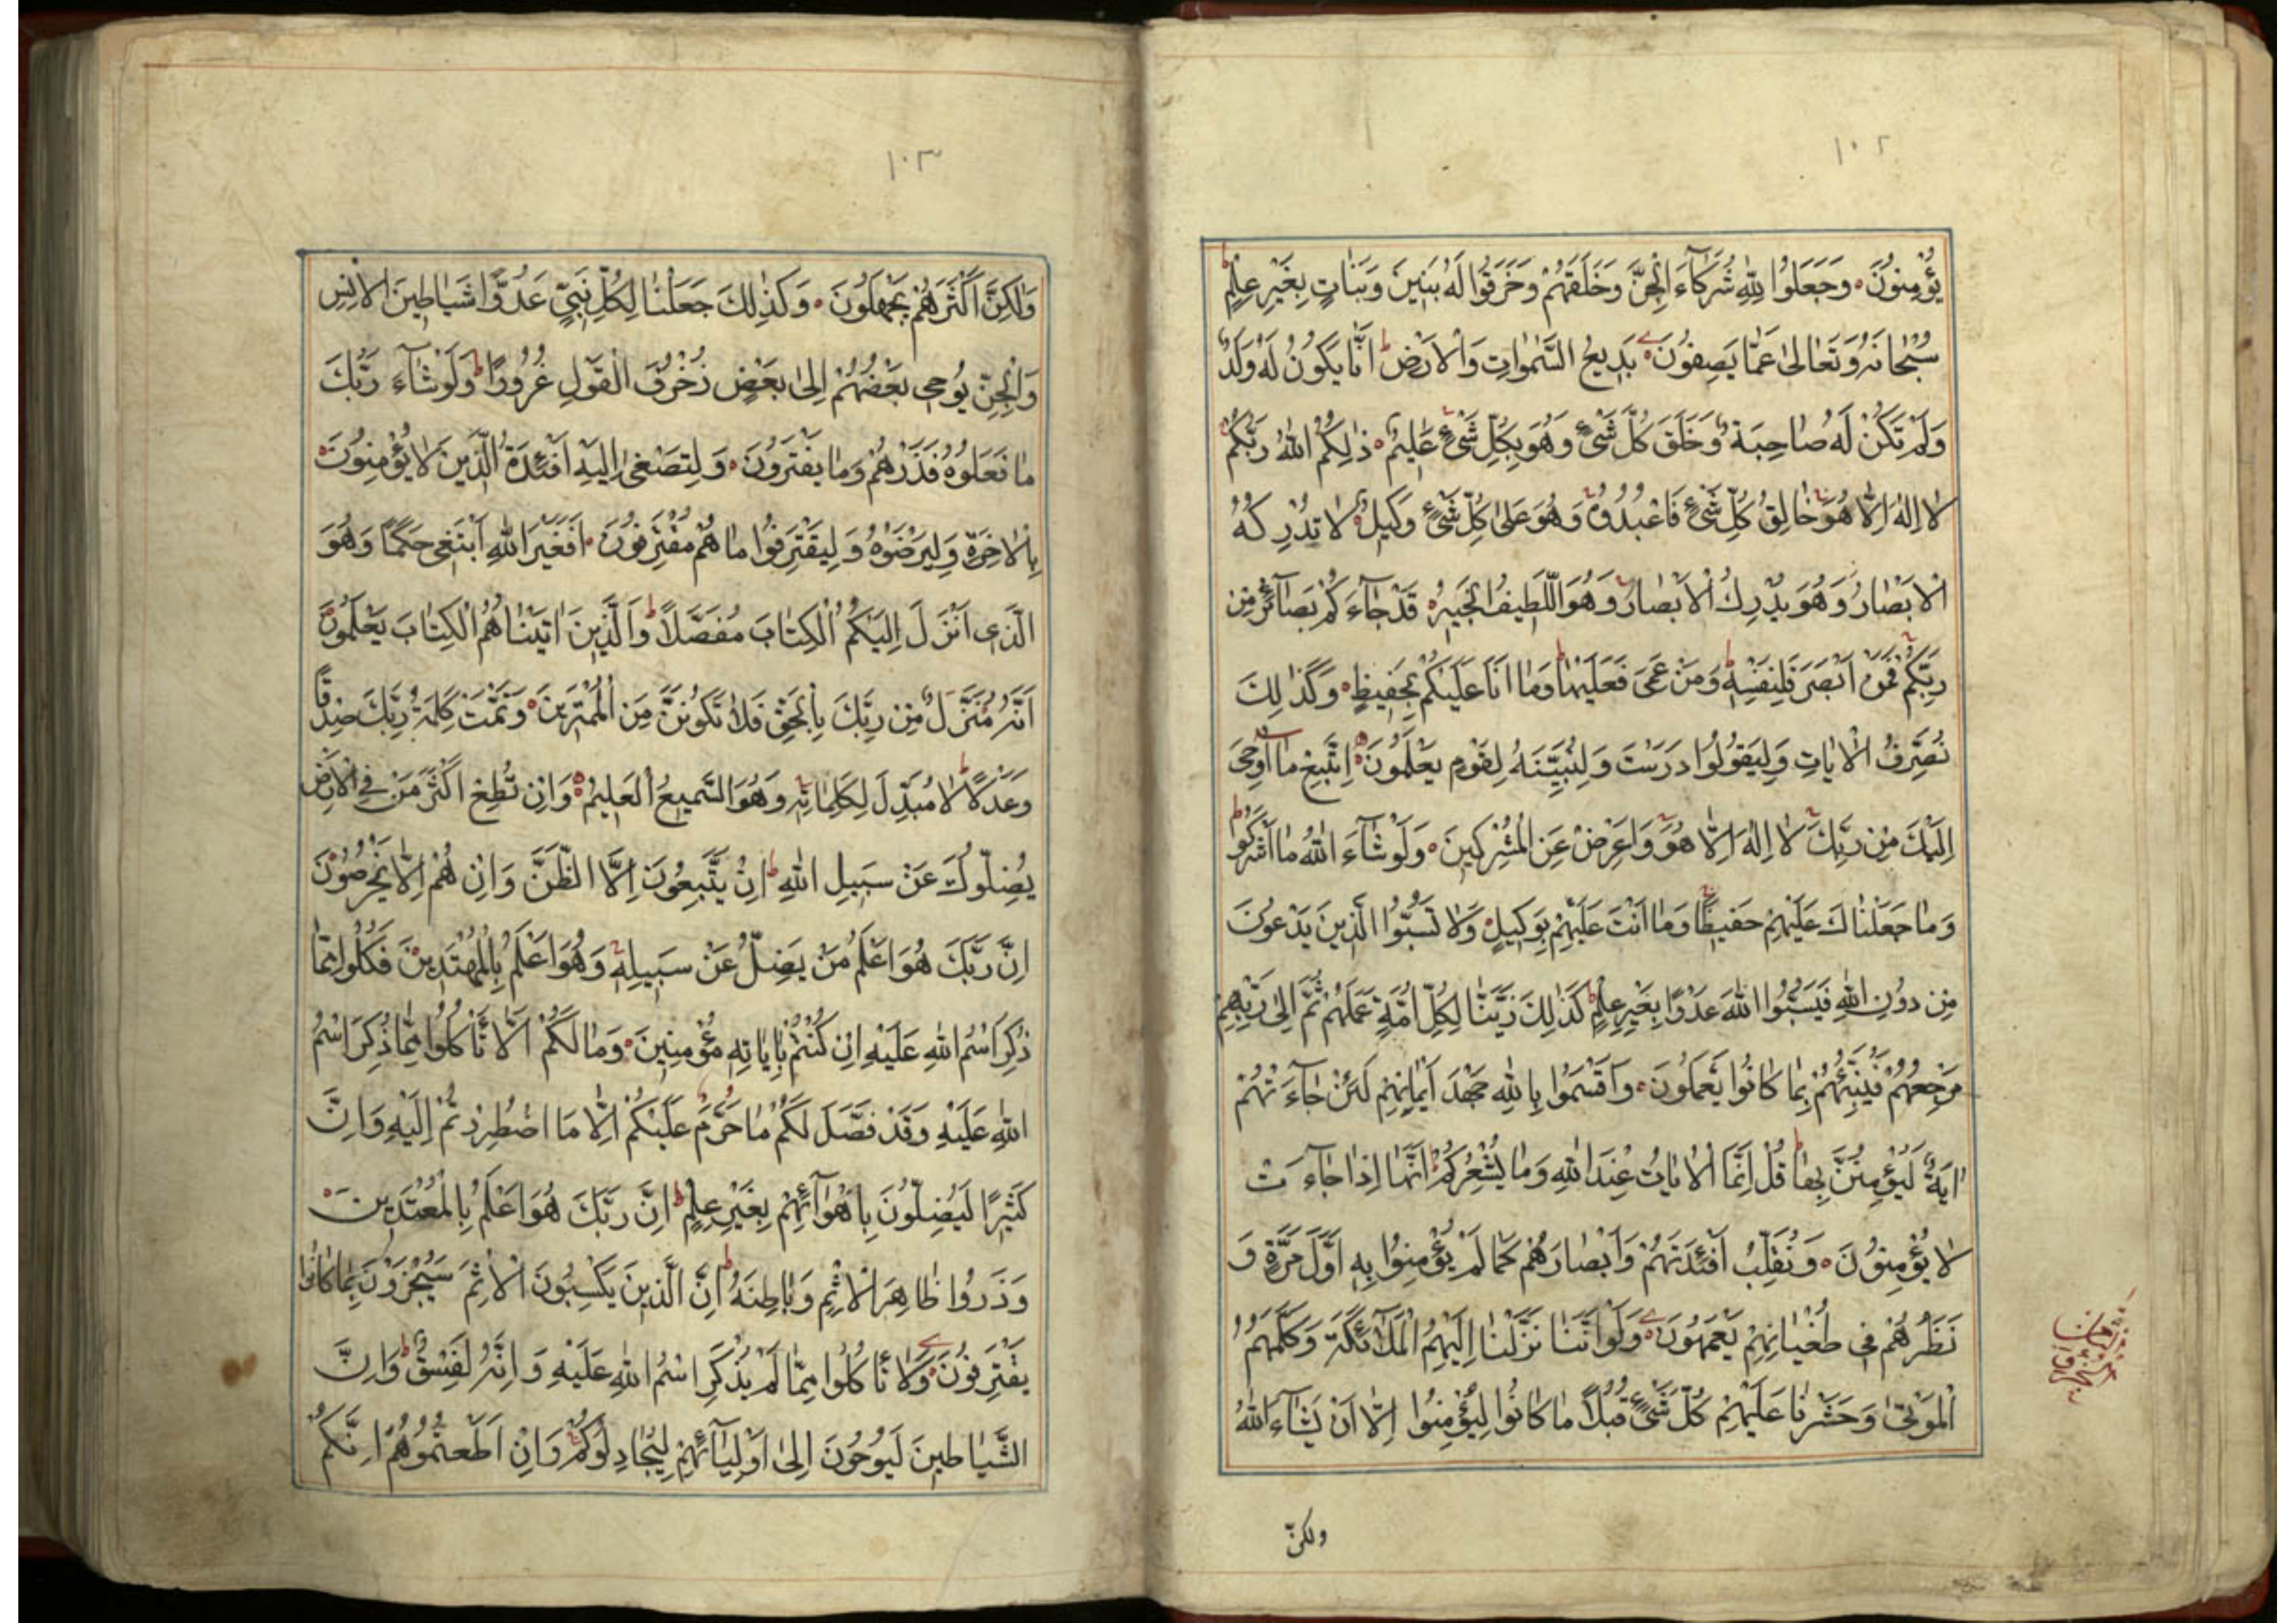 ١٠٢
يُؤْمِنُونَ وَجَعَلُوا لِلّٰهِ شُرَكَآءَ الْجِنَّ وَخَلَقَهُمْ وَخَرَقُوا لَهُ بَنِينَ وَبَنَاتٍ بِغَيْرِ عِلْمٍ
سُبْحَانَهُ وَتَعَالىٰ عَمَّا يَصِفُونَ بَدِيعُ السَّمٰوَاتِ وَالْاَرْضِ اَنّٰا يَكُونُ لَهُ وَلَدٌ
وَلَمْ تَكُنْ لَهُ صَاحِبَةٌ وَخَلَقَ كُلَّ شَىْءٍ وَهُوَ بِكُلِّ شَىْءٍ عَلِيمٌ ذٰلِكُمُ اللّٰهُ رَبُّكُمْ
لَا اِلٰهَ اِلَّا هُوَ خَالِقُ كُلِّ شَىْءٍ فَاعْبُدُوهُ وَهُوَ عَلىٰ كُلِّ شَىْءٍ وَكِيلٌ لَا تُدْرِكُهُ
الْاَبْصَارُ وَهُوَ يُدْرِكُ الْاَبْصَارَ وَهُوَ اللَّطِيفُ الْخَبِيرُ قَدْ جَآءَكُمْ بَصَآئِرُ مِنْ
رَبِّكُمْ فَمَنْ اَبْصَرَ فَلِنَفْسِهِ وَمَنْ عَمِىَ فَعَلَيْهَا وَمَا اَنَا عَلَيْكُمْ بِحَفِيظٍ وَكَذٰلِكَ
نُصَرِّفُ الْاٰيَاتِ وَلِيَقُولُوا دَرَسْتَ وَلِنُبَيِّنَهُ لِقَوْمٍ يَعْلَمُونَ اِتَّبِعْ مَآ اُوحِىَ
اِلَيْكَ مِنْ رَبِّكَ لَا اِلٰهَ اِلَّا هُوَ وَاَعْرِضْ عَنِ الْمُشْرِكِينَ وَلَوْ شَآءَ اللّٰهُ مَا اَشْرَكُوا
وَمَا جَعَلْنَاكَ عَلَيْهِمْ حَفِيظًا وَمَا اَنْتَ عَلَيْهِمْ بِوَكِيلٍ وَلَا تَسُبُّوا الَّذِينَ يَدْعُونَ
مِنْ دُونِ اللّٰهِ فَيَسُبُّوا اللّٰهَ عَدْوًا بِغَيْرِ عِلْمٍ كَذٰلِكَ زَيَّنَّا لِكُلِّ اُمَّةٍ عَمَلَهُمْ ثُمَّ اِلىٰ رَبِّهِمْ
مَرْجِعُهُمْ فَيُنَبِّئُهُمْ بِمَا كَانُوا يَعْمَلُونَ وَاَقْسَمُوا بِاللّٰهِ جَهْدَ اَيْمَانِهِمْ لَئِنْ جَآءَتْهُمْ
اٰيَةٌ لَيُؤْمِنُنَّ بِهَا قُلْ اِنَّمَا الْاٰيَاتُ عِنْدَ اللّٰهِ وَمَا يُشْعِرُكُمْ اَنَّهَا اِذَا جَآءَتْ
لَا يُؤْمِنُونَ وَنُقَلِّبُ اَفْئِدَتَهُمْ وَاَبْصَارَهُمْ كَمَا لَمْ يُؤْمِنُوا بِهِ اَوَّلَ مَرَّةٍ وَ
نَذَرُهُمْ فِى طُغْيَانِهِمْ يَعْمَهُونَ وَلَوْ اَنَّنَا نَزَّلْنَا اِلَيْهِمُ الْمَلَآئِكَةَ وَكَلَّمَهُمُ
الْمَوْتىٰ وَحَشَرْنَا عَلَيْهِمْ كُلَّ شَىْءٍ قُبُلًا مَا كَانُوا لِيُؤْمِنُوا اِلَّا اَنْ يَشَآءَ اللّٰهُ
ولكنّ
١٠٣
وَلٰكِنَّ اَكْثَرَهُمْ يَجْهَلُونَ وَكَذٰلِكَ جَعَلْنَا لِكُلِّ نَبِىٍّ عَدُوًّا شَيَاطِينَ الْاِنْسِ
وَالْجِنِّ يُوحِى بَعْضُهُمْ اِلىٰ بَعْضٍ زُخْرُفَ الْقَوْلِ غُرُورًا وَلَوْ شَآءَ رَبُّكَ
مَا فَعَلُوهُ فَذَرْهُمْ وَمَا يَفْتَرُونَ وَلِتَصْغىٰ اِلَيْهِ اَفْئِدَةُ الَّذِينَ لَا يُؤْمِنُونَ
بِالْاٰخِرَةِ وَلِيَرْضَوْهُ وَلِيَقْتَرِفُوا مَا هُمْ مُقْتَرِفُونَ اَفَغَيْرَ اللّٰهِ اَبْتَغِى حَكَمًا وَهُوَ
الَّذِى اَنْزَلَ اِلَيْكُمُ الْكِتَابَ مُفَصَّلًا وَالَّذِينَ اٰتَيْنَاهُمُ الْكِتَابَ يَعْلَمُونَ
اَنَّهُ مُنَزَّلٌ مِنْ رَبِّكَ بِالْحَقِّ فَلَا تَكُونَنَّ مِنَ الْمُمْتَرِينَ وَتَمَّتْ كَلِمَةُ رَبِّكَ صِدْقًا
وَعَدْلًا لَا مُبَدِّلَ لِكَلِمَاتِهِ وَهُوَ السَّمِيعُ الْعَلِيمُ وَاِنْ تُطِعْ اَكْثَرَ مَنْ فِى الْاَرْضِ
يُضِلُّوكَ عَنْ سَبِيلِ اللّٰهِ اِنْ يَتَّبِعُونَ اِلَّا الظَّنَّ وَاِنْ هُمْ اِلَّا يَخْرُصُونَ
اِنَّ رَبَّكَ هُوَ اَعْلَمُ مَنْ يَضِلُّ عَنْ سَبِيلِهِ وَهُوَ اَعْلَمُ بِالْمُهْتَدِينَ فَكُلُوا مِمَّا
ذُكِرَ اسْمُ اللّٰهِ عَلَيْهِ اِنْ كُنْتُمْ بِاٰيَاتِهِ مُؤْمِنِينَ وَمَا لَكُمْ اَلَّا تَأْكُلُوا مِمَّا ذُكِرَ اسْمُ
اللّٰهِ عَلَيْهِ وَقَدْ فَصَّلَ لَكُمْ مَا حَرَّمَ عَلَيْكُمْ اِلَّا مَا اضْطُرِرْتُمْ اِلَيْهِ وَاِنَّ
كَثِيرًا لَيُضِلُّونَ بِاَهْوَآئِهِمْ بِغَيْرِ عِلْمٍ اِنَّ رَبَّكَ هُوَ اَعْلَمُ بِالْمُعْتَدِينَ
وَذَرُوا ظَاهِرَ الْاِثْمِ وَبَاطِنَهُ اِنَّ الَّذِينَ يَكْسِبُونَ الْاِثْمَ سَيُجْزَوْنَ بِمَا كَانُوا
يَقْتَرِفُونَ وَلَا تَأْكُلُوا مِمَّا لَمْ يُذْكَرِ اسْمُ اللّٰهِ عَلَيْهِ وَاِنَّهُ لَفِسْقٌ وَاِنَّ
الشَّيَاطِينَ لَيُوحُونَ اِلىٰ اَوْلِيَآئِهِمْ لِيُجَادِلُوكُمْ وَاِنْ اَطَعْتُمُوهُمْ اِنَّكُمْ